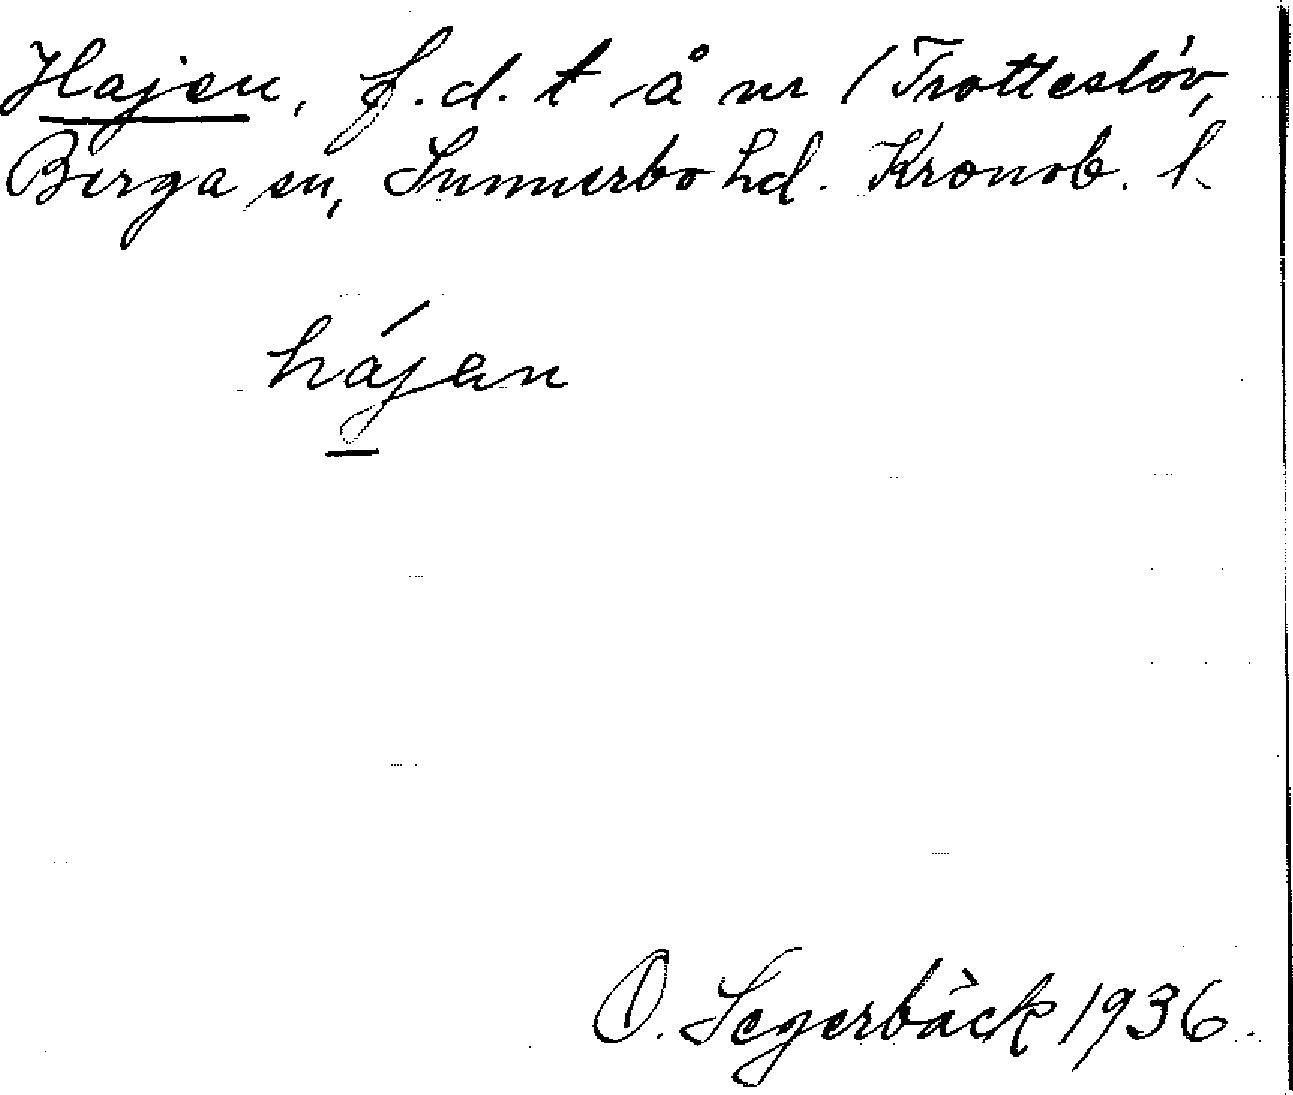 Hajen, f.d. t å nr 1 Trotteslöv,
Berga sn, Sunnerbo hd. Kronob. l.
hájan
O. Segerbäck 1936.